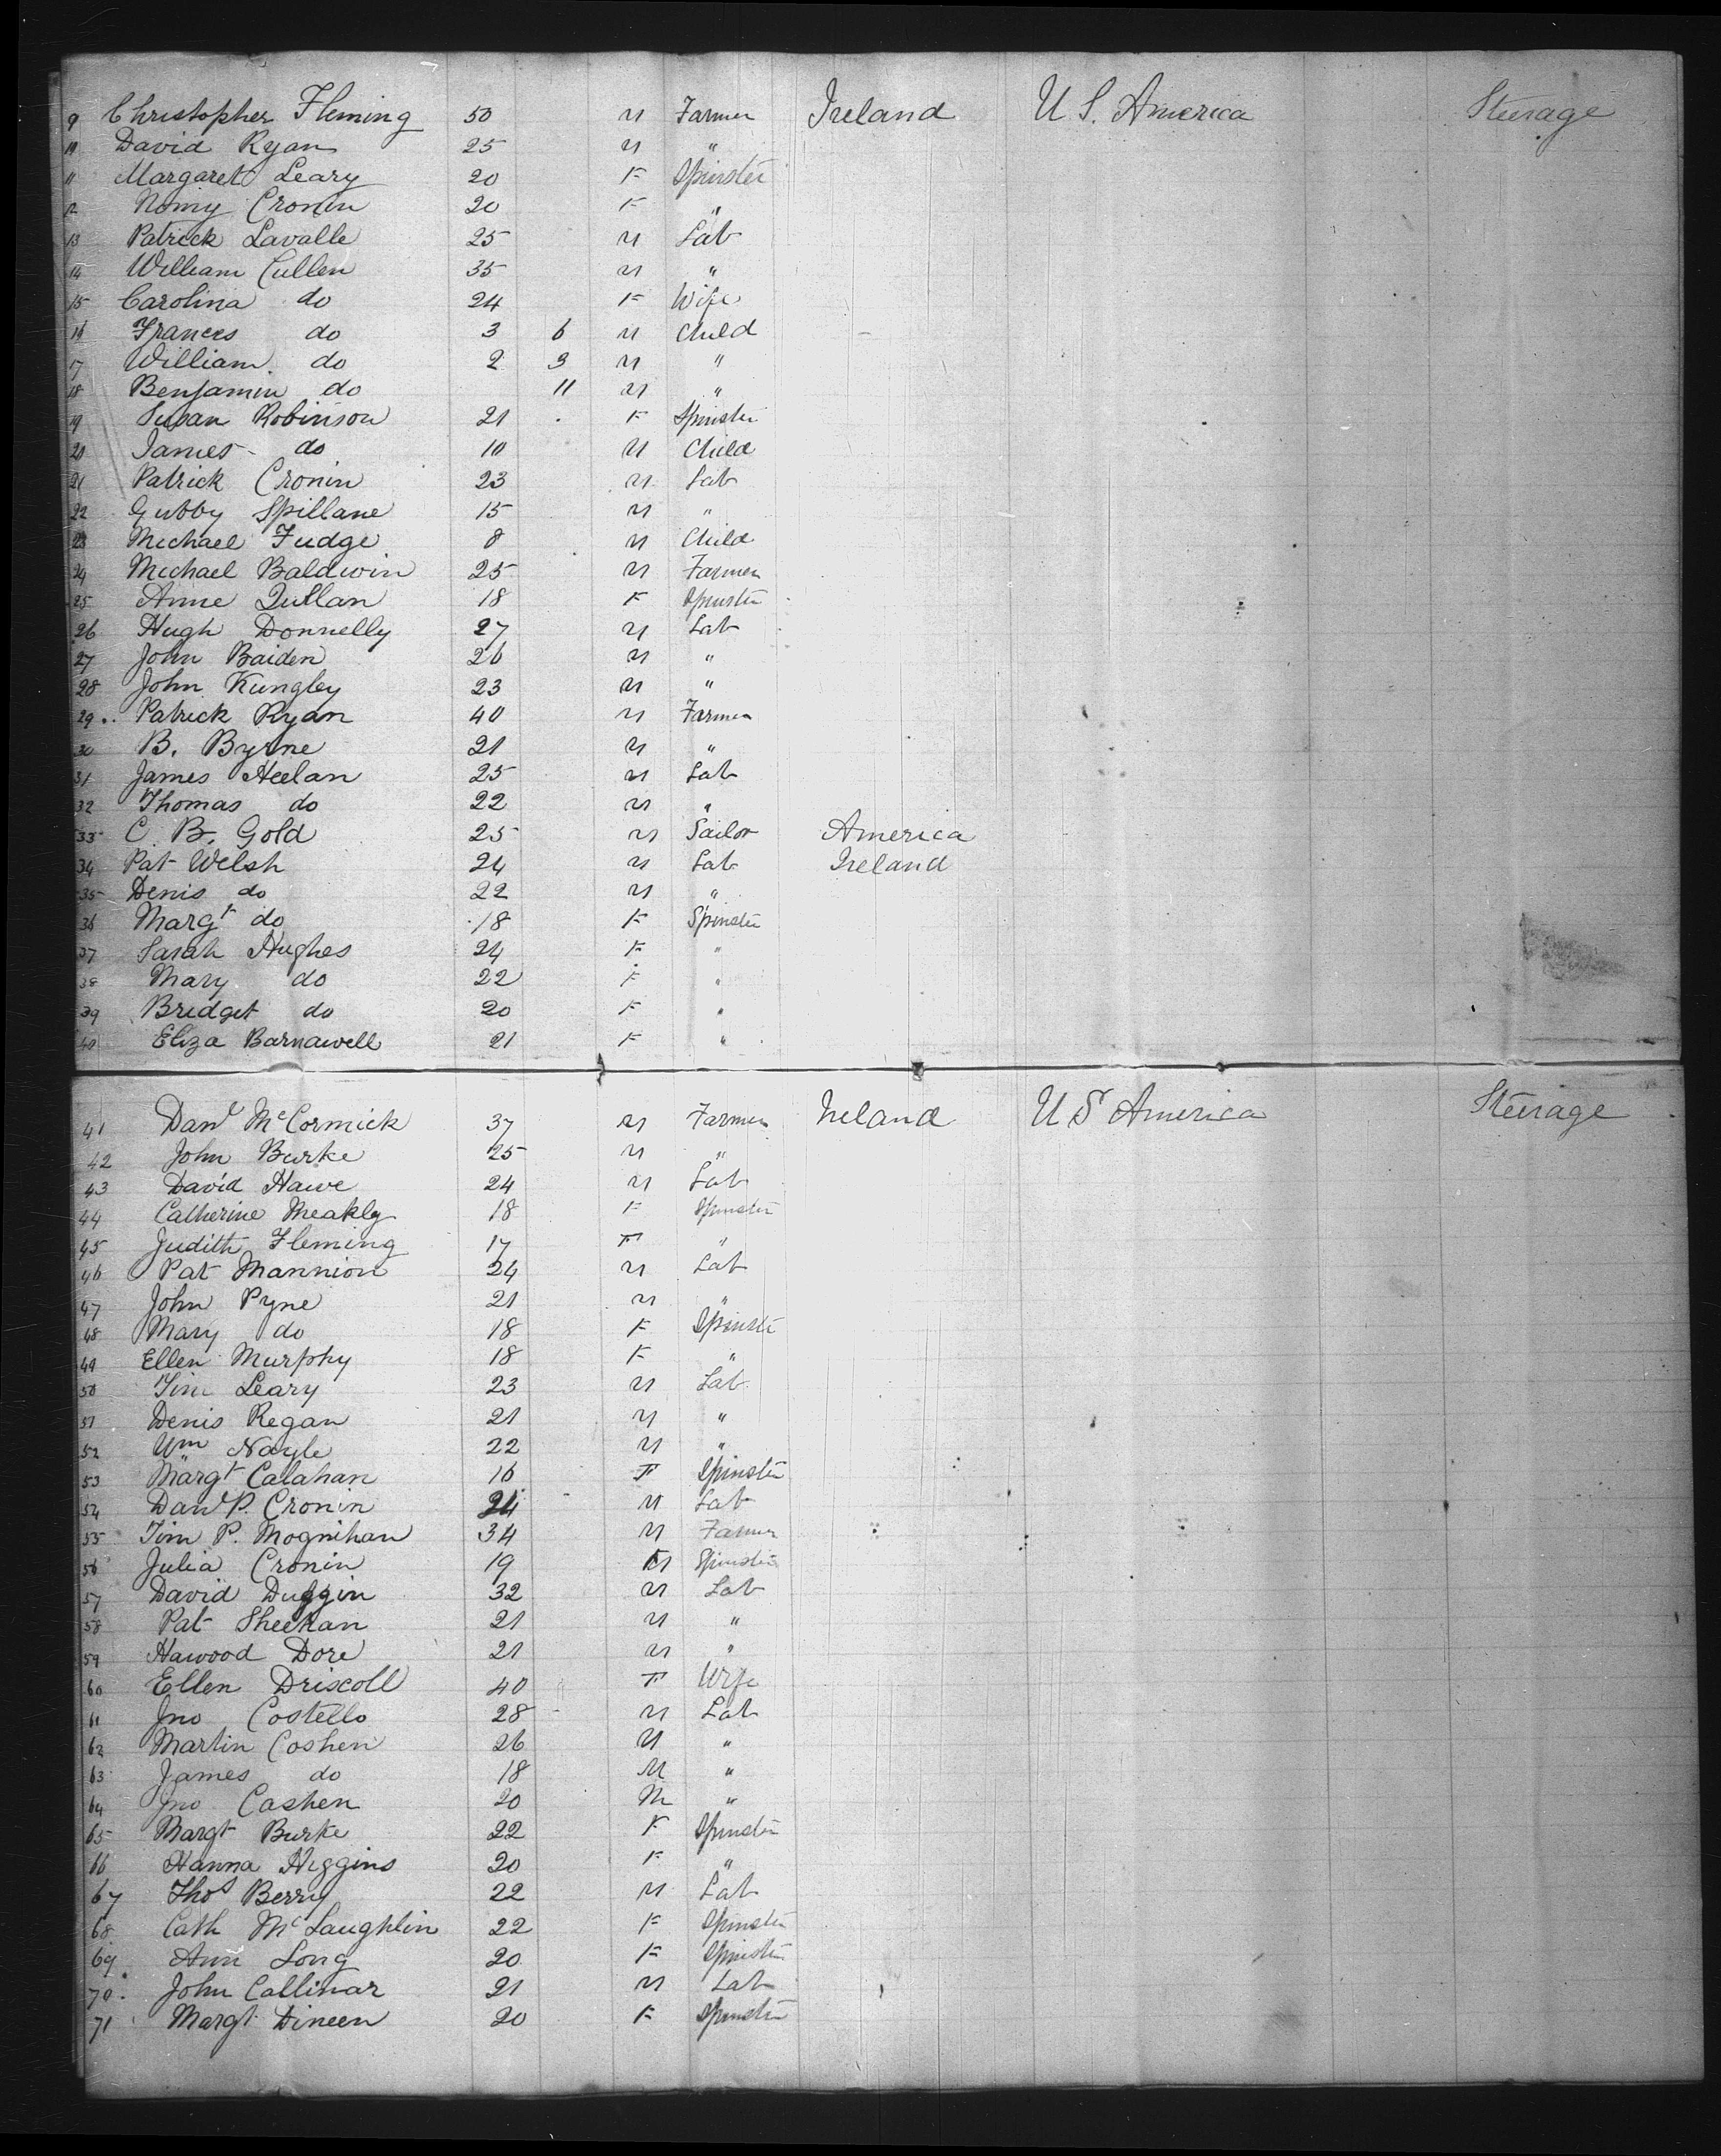 9 Christopher Fleming 50 M Farmer Ireland U S. America Steerage
10 David Ryan 25 M "
11 Margaret Leary 20 F Spinster
12 Cronin 20 F "
13 Patrick Lavalle 25 M Lab
14 William Cullen 35 M "
15 Carolina do 24 F Wife
16 Frances do 3 6 M Child
17 William do 2 3 M "
18 Benjamin do 11 M "
19 Susan Robinson 21 F Spinster
20 James do 10 M Child
21 Patrick Cronin 23 M Lab
22 Gubby Spillane 15 M "
23 Michael Fudge 8 M Child
24 Michael Baldwin 25 M Farmer
25 Anne 18 F Spinster
26 Hugh Donnelly 27 M Lab
27 John Baiden 26 M "
28 John Kungley 23 M "
29 Patrick Ryan 40 M Farmer
30 B. Byrne 21 M "
31 James Heelan 25 M Lab
32 Thomas do 22 M "
33 C. B. Gold 25 M Sailor America
34 Pat Welsh 24 M Lab Ireland
35 Denis do 22 M "
36 Margt do 18 F Spinster
37 Sarah Hughes 24 F "
38 Mary do 22 F "
39 Bridget do 20 F "
40 Eliza Barnawell 21 F "
41 Danl McCormick 37 M Farmer Ireland U S America Steerage
42 John Burke 25 M "
43 David Hawe 24 M Lab
44 Catherine Meakly 18 F Spinster
45 Judith Fleming 17 F "
46 Pat Mannion 24 M Lab
47 John Pyne 21 M "
48 Mary do 18 F Spinster
49 Ellen Murphy 18 F "
50 Tim Leary 23 M Lab
51 Denis Regan 21 M "
52 Wm Nagle 22 M "
53 Margt Calahan 16 F Spinster
54 Danl P. Cronin 24 M Lab
55 Tim P. Mognihan 34 M Farmer
56 Julia Cronin 19 F Spinster
57 David Duggin 32 M Lab
58 Pat Sheehan 21 M "
59 Hawood Dore 21 M "
60 Ellen Driscoll 40 F Wife
61 Jno Costello 28 M Lab
62 Martin Coshen 26 M "
63 James do 18 M "
64 Jno Cashen 20 M "
65 Margt Burke 22 F Spinster
66 Hanna Higgins 20 F "
67 Thos Berry 22 M Lab
68 Cath McLaughlin 22 F Spinster
69 Ann Long 20 F Spinster
70 John Callinar 21 M Lab
71 Margt Dineen 20 F Spinster